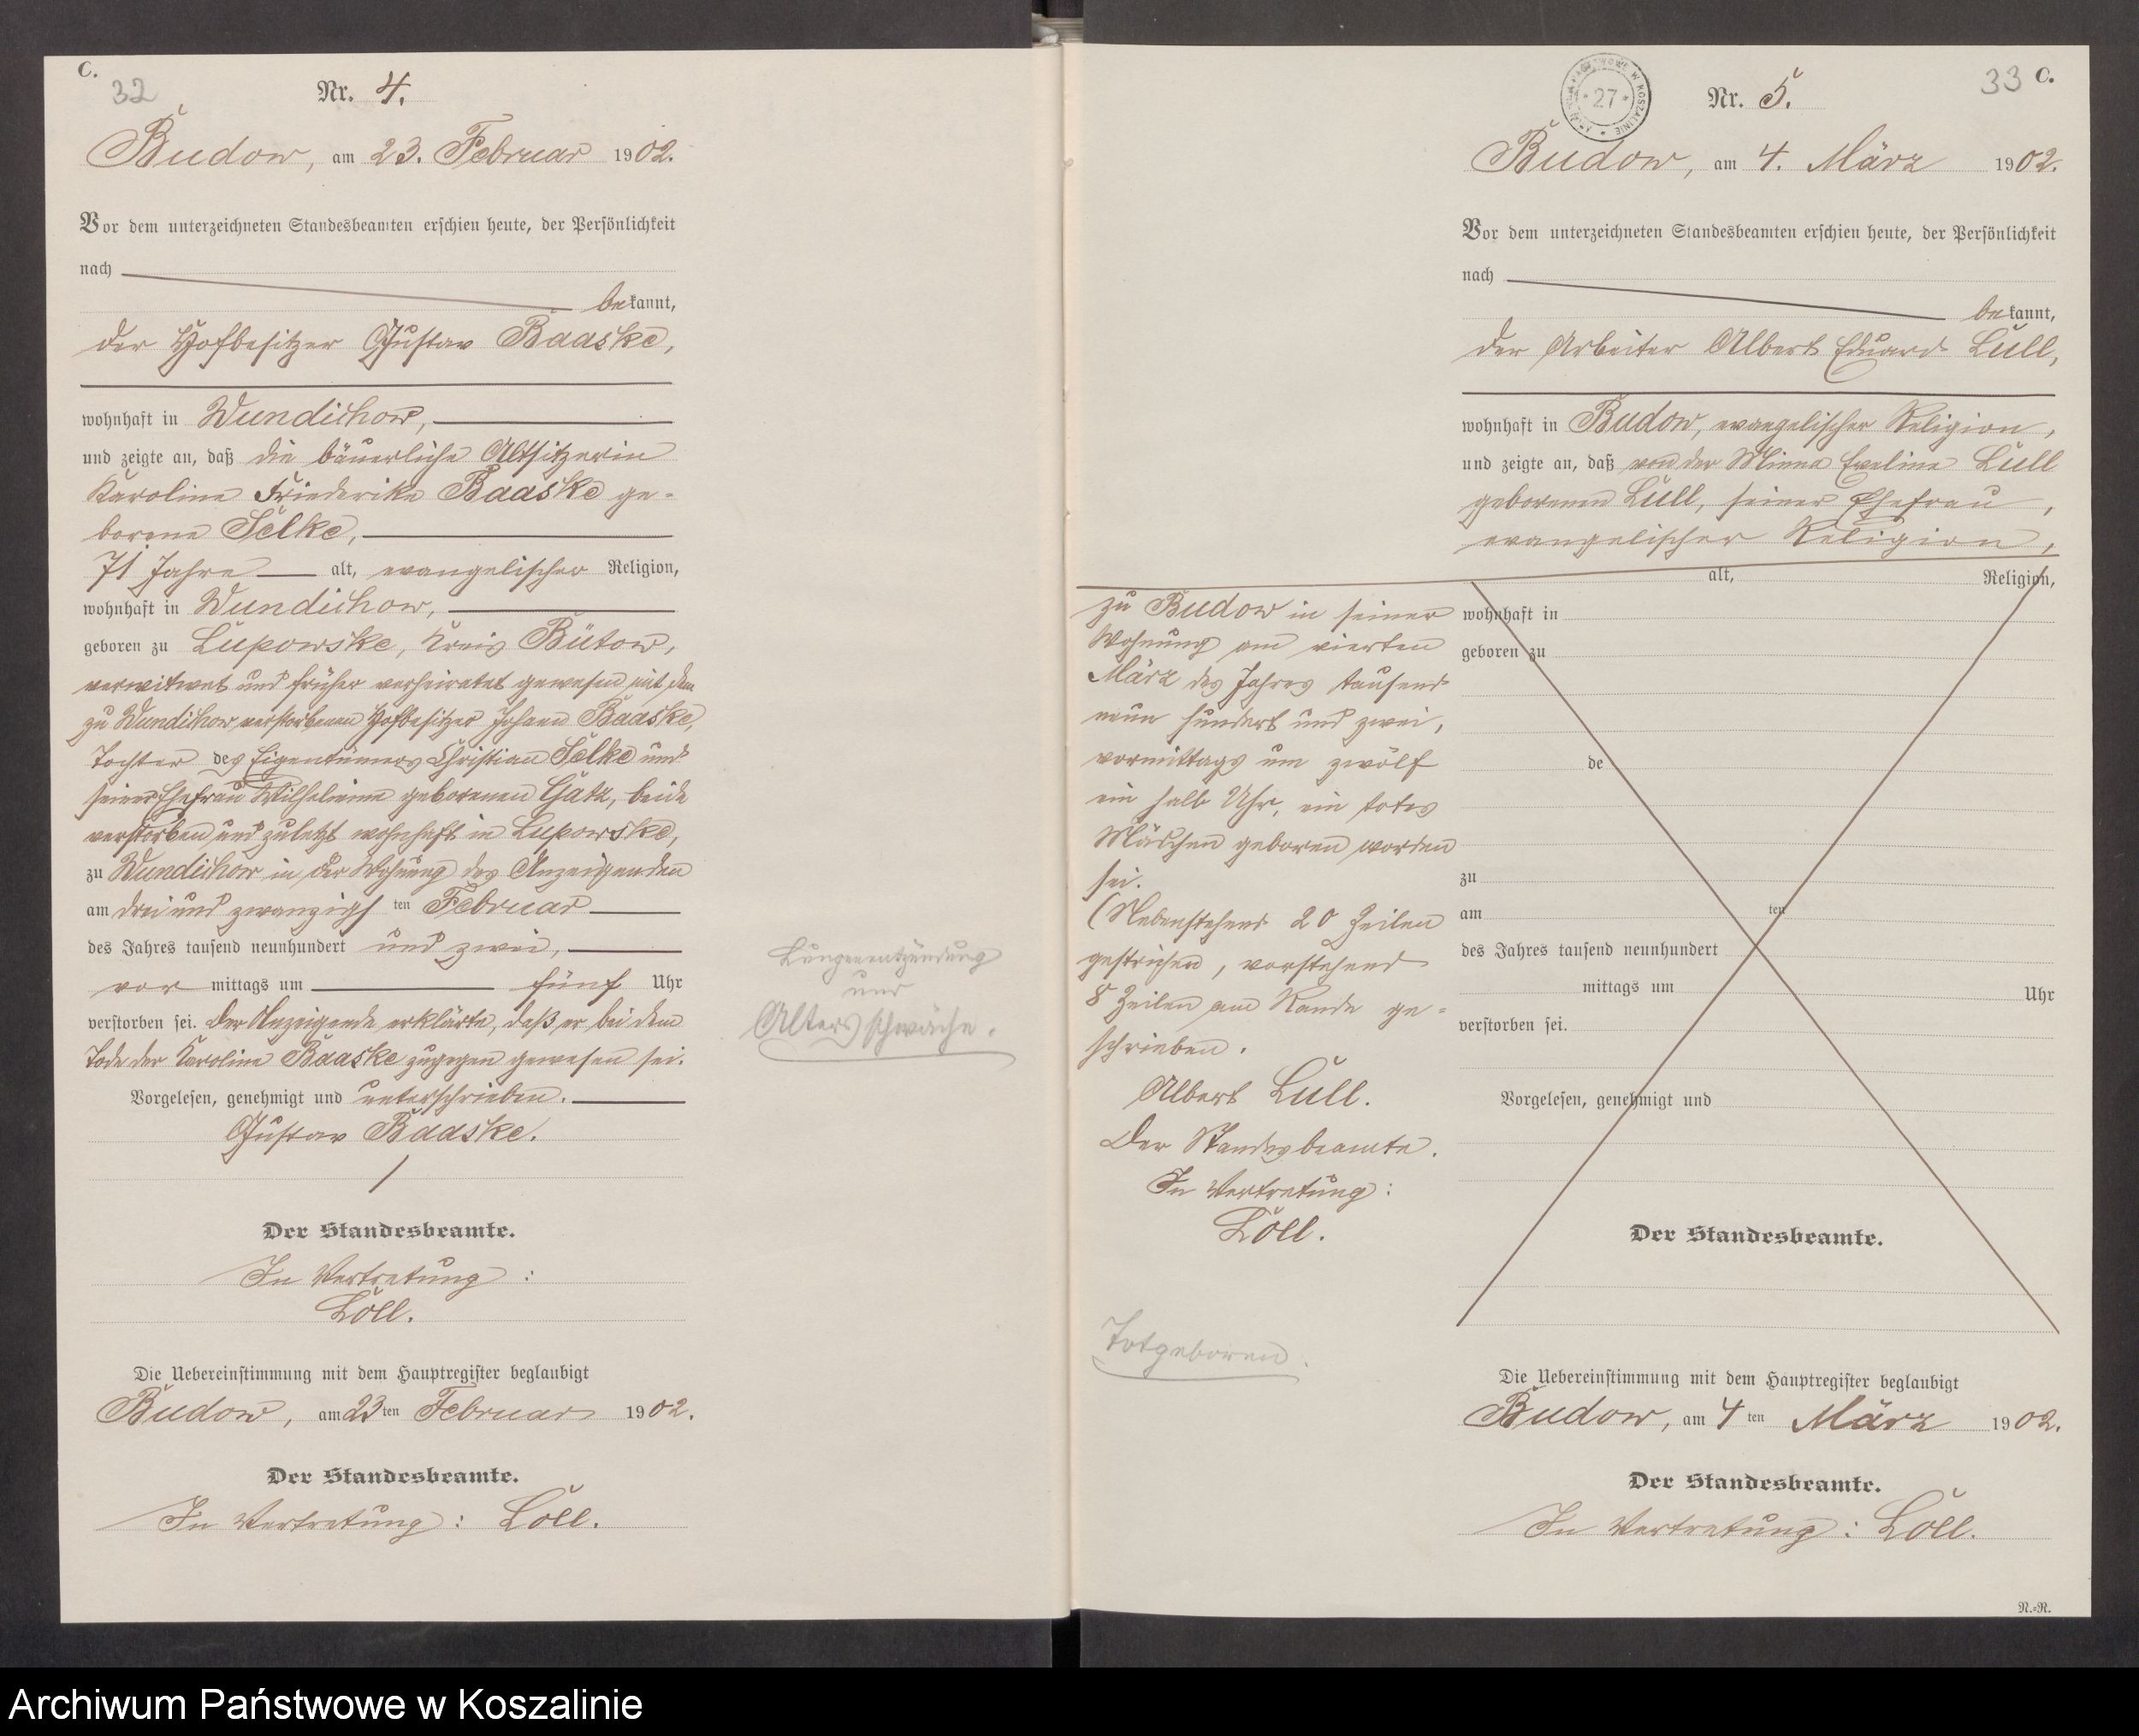 C.
32
Nr. 4.
Budow, am 23. Februar 1902.
Vor dem unterzeichneten Standesbeamten erschien heute, der Persönlichkeit
nach
bekannt,
der Hofbesitzer Gustav Baaske,
wohnhaft in Wundichow,
und zeigte an, daß die bäuerliche Altsitzerin
Karoline Friederike Baaske ge-
borene Selke,
71 Jahre alt, evangelischer Religion,
wohnhaft in Wundichow,
geboren zu Lupowske, Kreis Bütow,
verwitwet und früher verheiratet gewesen mit dem
zu Wundichow verstorbenen Hofbesitzer Johann Baaske,
Tochter des Eigentümers Christian Selke und
seiner Ehefrau Wilhelmine geborenen Gatz, beide
verstorben und zuletzt wohnhaft in Lupowske,
zu Wundichow in der Wohnung des Anzeigenden
am drei und zwanzigsten Februar
des Jahres tausend neunhundert und zwei,
vor mittags um fünf Uhr
verstorben sei. Der Anzeigende erklärte, daß er bei dem
Tode der Karoline Baaske zugegen gewesen sei.
Vorgelesen, genehmigt und unterschrieben.
Gustav Baaske.
Der Standesbeamte.
In Vertretung:
Löll.
Die Uebereinstimmung mit dem Hauptregister beglaubigt
Budow, am 23ten Februar 1902.
Der Standesbeamte.
In Vertretung: Löll.
Lungenentzündung
und
Altersschwäche.
27
Nr. 5.
33 C.
Budow, am 4. März 1902.
Vor dem unterzeichneten Standesbeamten erschien heute, der Persönlichkeit
nach
bekannt,
der Arbeiter Albert Eduard Lull,
wohnhaft in Budow, evangelischer Religion,
und zeigte an, daß von der Minna Eveline Lull
geborenen Lull, seiner Ehefrau,
evangelischer Religion,
zu Budow in seiner
Wohnung am vierten
März des Jahres tausend
neun hundert und zwei,
vormittags um zwölf
ein halb Uhr, ein totes
Mädchen geboren worden
sei.
(Nebenstehend 20 Zeilen
gestrichen, vorstehend
8 Zeilen am Rande ge-
schrieben.
Albert Lull.
Der Standesbeamte.
In Vertretung:
Löll.
Totgeboren.
alt, Religion,
wohnhaft in
geboren zu
de
zu
am ten
des Jahres tausend neunhundert
mittags um Uhr
verstorben sei.
Vorgelesen, genehmigt und
Der Standesbeamte.
Die Uebereinstimmung mit dem Hauptregister beglaubigt
Budow, am 4ten März 1902.
Der Standesbeamte.
In Vertretung: Löll.
N.-R.
Archiwum Państwowe w Koszalinie